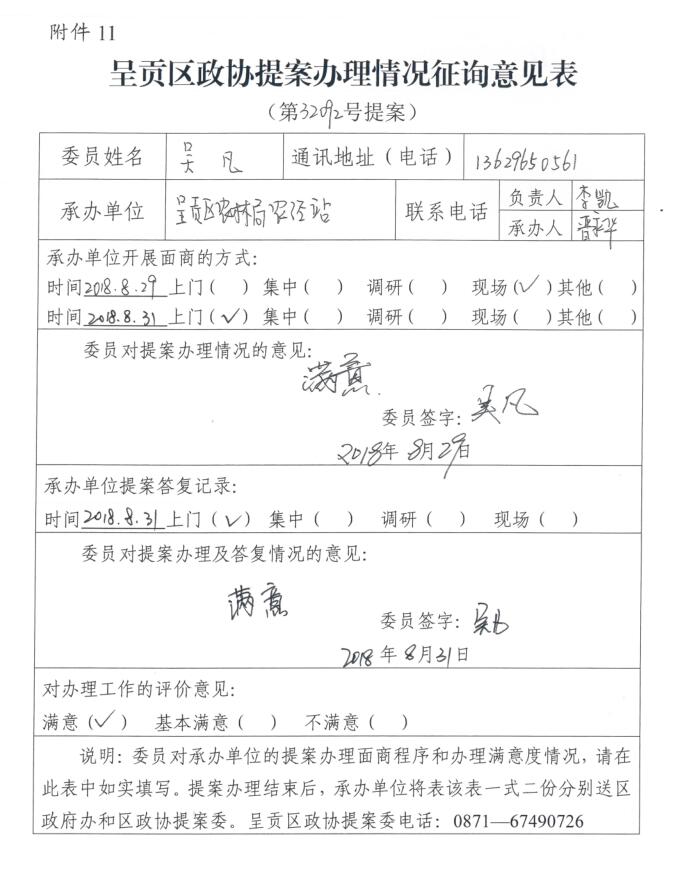 附件 11
呈贡区政协提案办理情况征询意见表
（第32092号提案）
委员姓名 吴 凡 通讯地址（电话） 13629650561
承办单位 呈贡区农林局农经站 联系电话 负责人 李凯
承办人 晋翠华
承办单位开展面商的方式：
时间2018.8.29上门（ ）集中（ ） 调研（ ） 现场（✓）其他（ ）
时间2018.8.31上门（✓）集中（ ） 调研（ ） 现场（ ）其他（ ）
委员对提案办理情况的意见：
满意.
委员签字：吴凡
2018年 8月29日
承办单位提案答复记录：
时间2018.8.31上门（✓）集中（ ） 调研（ ） 现场（ ）
委员对提案办理及答复情况的意见：
满意
委员签字：吴凡
2018年 8月31日
对办理工作的评价意见：
满意（✓） 基本满意（ ） 不满意（ ）
说明：委员对承办单位的提案办理面商程序和办理满意度情况，请在
此表中如实填写。提案办理结束后，承办单位将表该表一式二份分别送区
政府办和区政协提案委。呈贡区政协提案委电话：0871—67490726